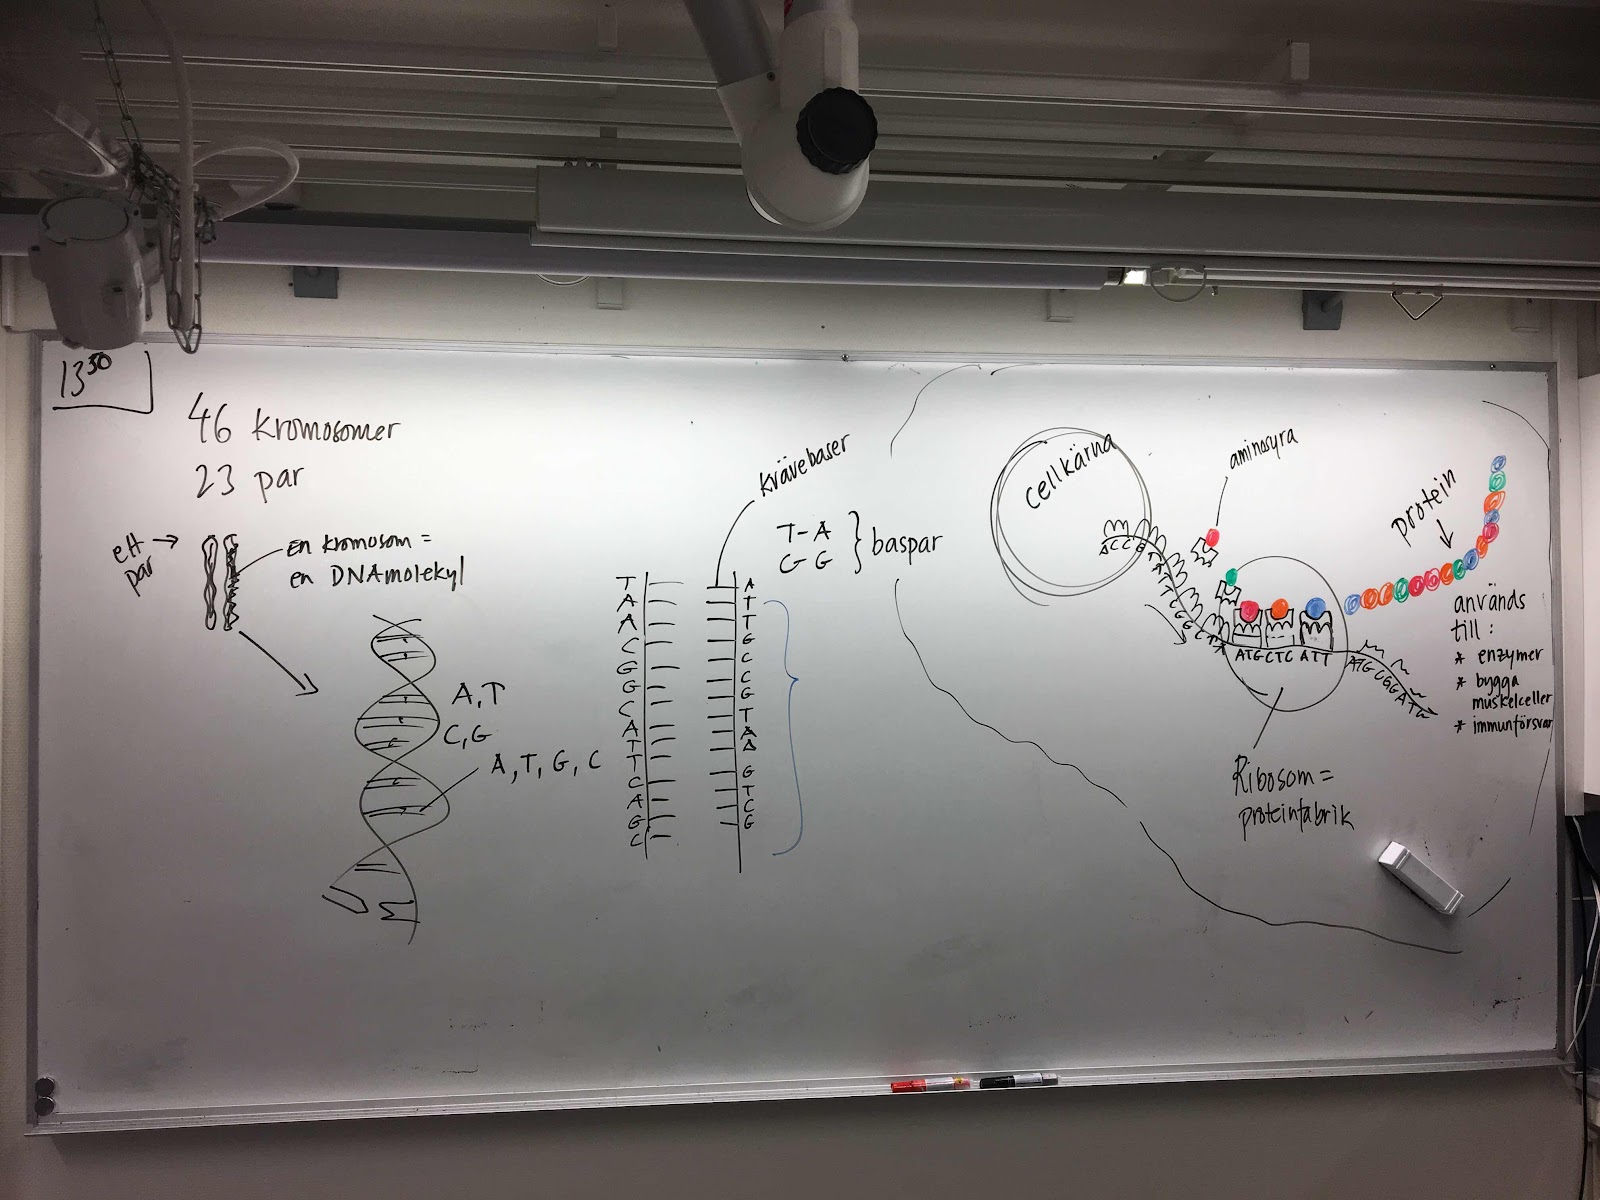 13 30
46 kromosomer
23 par
ett par
en kromosom =
en DNAmolekyl
A, T
C, G
A, T, G, C
kvävebaser
T-A
C G
baspar
T
A
A
C
G
G
C
A
T
T
C
A
G
C
A
T
T
G
C
C
G
T
A
A
G
T
C
G
cellkärna
aminosyra
protein
ATG CTC ATT
ATGCGGATG
används
till :
* enzymer
* bygga
muskelceller
* immunförsvar
Ribosom =
proteinfabrik